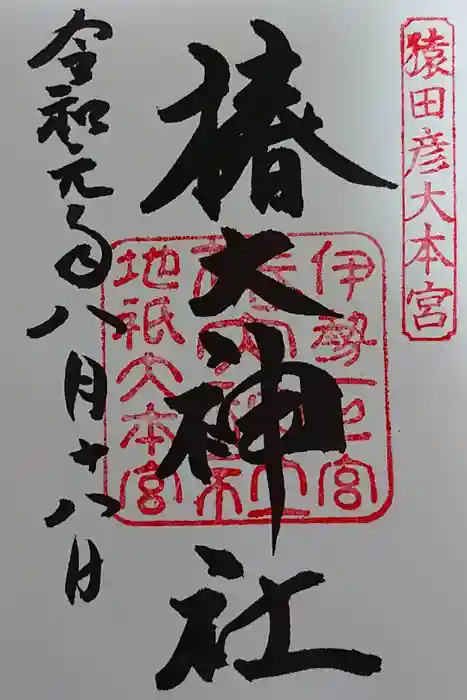 猿田彦大本宮
椿大神社
伊勢一之宮
地祇大本宮
令和元年八月十八日